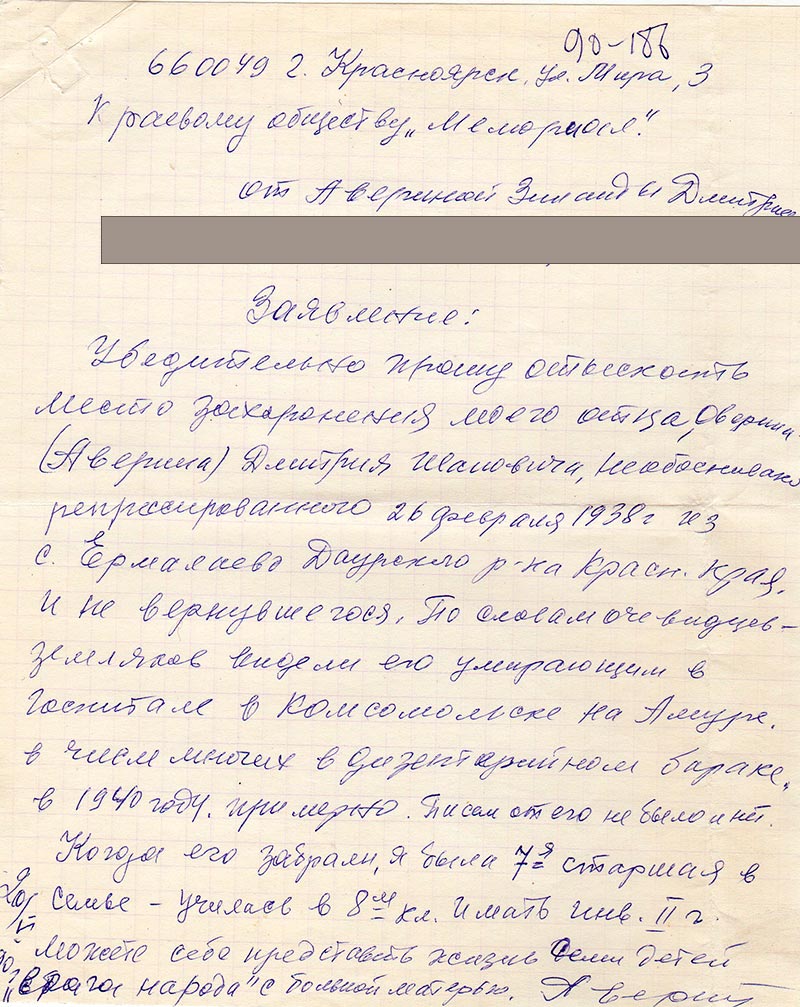 90-186
660049 г. Красноярск, ул. Мира, 3
Краевому обществу „Мемориал".
от Авериной Зинаиды Дмитриев
Заявление:
Убедительно прошу отыскать
место захоронения моего отца, Оверина
(Аверина) Дмитрия Ивановича, необосновано
репрессированного 26 февраля 1938 г из
с. Ермалаево Даурскго р-на Красн. края.
И не вернувшегося. По словам очевидцев-
земляков видели его умирающим в
госпитале в Комсомольске на Амуре.
в числе многих в дизентерийном бараке.
в 1940 году. примерно. Писем от его не было и нет.
Когда его забрали, я была 7-я старшая в
семье – училась в 8м кл. И мать инв. II г.
Можете себе представить жизнь семи детей
„врага народа" с больной матерью. Аверин